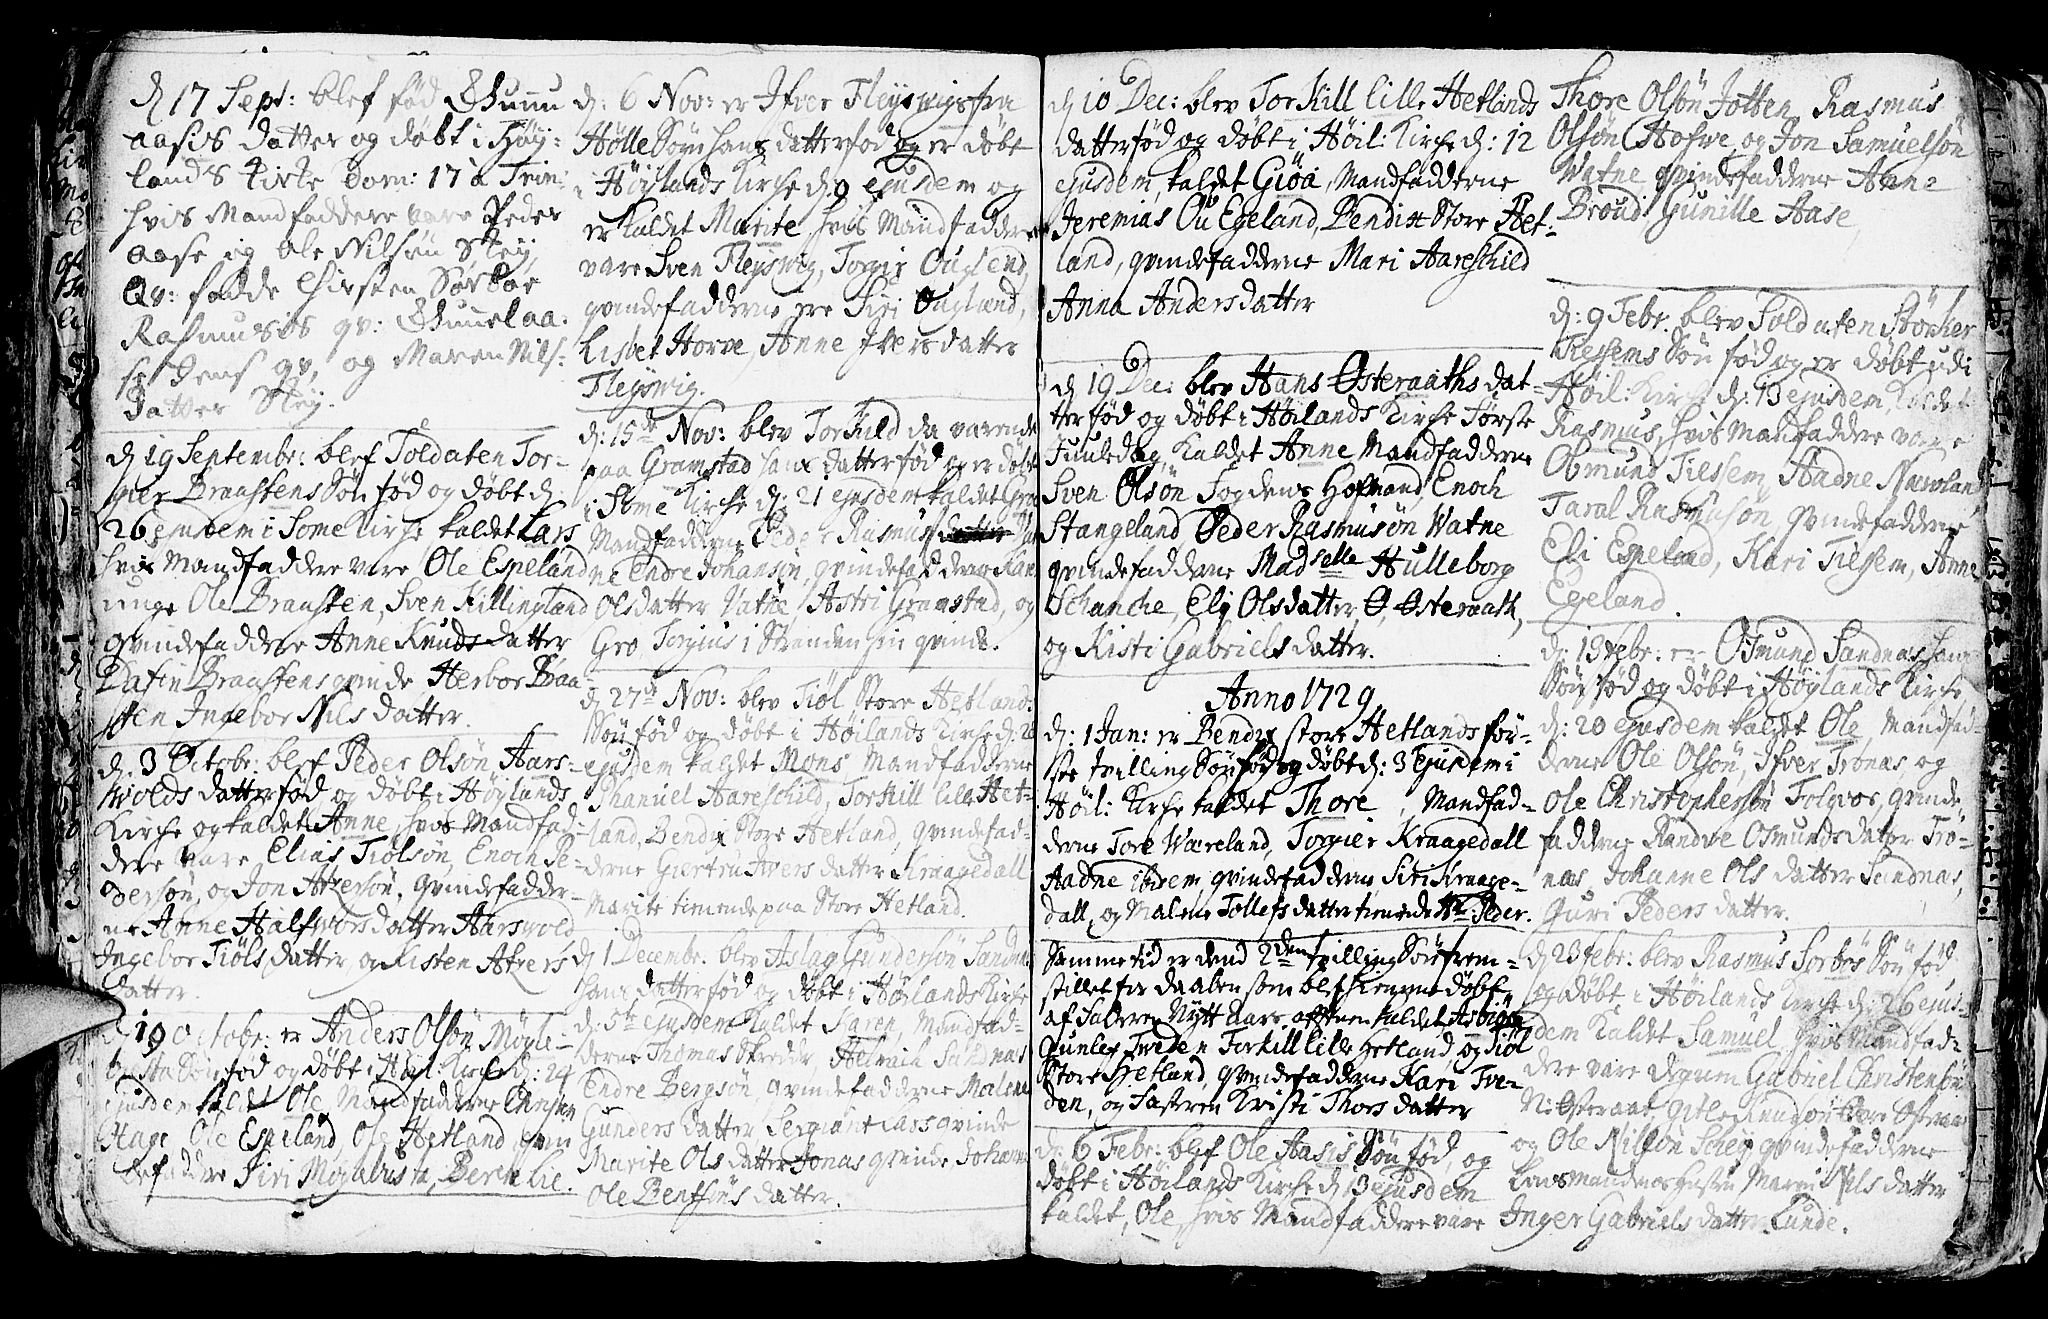 d 17 Sept: blef fød Gunnu
aasis datter og døbt i Høÿ-
lands Kirke Dom: 17 à Trin:
hvis Mandfaddere vare Peder
Aase og Ole Nilsøn Skeÿ,
Qv: fadde Chirsten Sørboe
Rasmusis qv: Gunnel aa-
se dens qv, og Maren Nils-
datter Skeÿ.
d 19 Septembr: blef Soldaten Tor-
gier Braastens Søn fød og døbt d
26 ejusdem i Some Kirche kaldet Lars
hvis Mandfaddere vare Ole Espeland
unge Ole Braasten, Sven Killingland
qvindefaddere Anne Knudsdatter
Dafin Braastens qvinde Herbor Braa-
sten Ingebor Nilsdatter.
d. 3 Octobr: blef Peder Olsøn Aars-
wolds datter fød og døbt i Høÿlands
Kirche og kaldet Anne, hvis Mandfad-
dere vare Elias Tiølsøn, Enoch Pe-
dersøn, og Jon Atersøn. Qvindefadder-
ne Anne Halfworsdatter Aarswold
Ingebor Tiølsdatter og Kisten Aters
datter.
d 19 Octobr: er Anders Olsøn Møgle-
busta Søn fød og døbt i Høÿl: Kirche d: 24
ejusdem kaldet Ole Mandfadderne Christen
Hage Ole Espeland, Ole Hetland qvin
defaddere Siri Møglebusta, Berte Lie.
d: 6 Nov: er Ifver Fleÿswigs fra
Hølle Sogn hans datter fød og er døbt
i Høÿlands Kirche d 9 ejusdem og
er kaldet Marite hvis Mandfaddere
vare Sven Fleÿswig, Torgir Ougland,
qvindefadderne ere Siri Ougland,
Lisbet Horve, Anne Iversdatter
Fleÿswig.
d: 15de Nov: blev Torkild da værende
paa Gramstad hans datter fød og er døbt
i Some Kirche d: 21 ejusdem kaldet Gro
Mandfadderne Peder Rasmus
ne Endre Johansøn, qvindefadderne Kari
Olsdatter Vatne Astri Gramstad, og
Gro Torgius i Stranden sin qvinde.
d 27de Nov: blev Tiøl Store Hetlands
Søn fød og døbt i Høilands Kirche d: 28
ejusdem kaldet Mons, Mandfadderne
Phanuel Aareschild, Torkill lille Het-
land, Bendix Store Hetland, qvindefad-
derne Giertru Iversdatter Kraagedall
Marite tienende paa Store Hetland.
d 1 Decembr. blev Aslag Gundersøn Sandnæs
hans datter fød og døbt i Høilands Kirche
d: 5te ejusdem kaldet Karen, Mandfad-
derne Thomas Skredder Helmich Sandnas
Endre Bergsøn, qvindefadderne Malene
Gunders datter Sergiante Lars qvinde
Marite Olsdatter Jonas qvinde Johanna
Ole Bentsøns datter.
d 10 Dec: blev Torkill lille Hetlands
datter fød og døbt i Høil: Kirche d: 12
ejusdem, kaldet Giöa, Mandfadderne
Jeremias Ou Egeland, Bendix Store Het-
land, qvindefadderne Mari Aareschild
Anna Andersdatter
d 19 Dec: blev Hans Østeraaths dat-
ter fød og døbt i Høilands Kirche Første
Juuledag kaldet Anne Mandfadderne
Sven Olsön Fogdens Hofmand, Enoch
Stangeland Peder Rasmusøn Watne
qvindefadderne Madselle Hulleborg
Schanche, Elÿ Olsdatter, Østeraath,
og Kisti Gabrielsdatter.
Anno 1729
d: 1 Jan: er Bendix store Hetlands før-
ste tvilling Søn fød og døbt d: 3 Ejusdem i
Høil: Kirche kaldet Thore, Mandfad-
derne Tore Wæreland, Torgier Kraagedall
Aadne ibidem, qvindefadderne Siri Kraage-
dall, og Malene Tollefsdatter tienende Hr: Peder.
Samme tid er dend 2den tvilling Søn frem-
stillet for daaben som blef hiemme døbt
af faderen Nytt Aars afften kaldet Asbiørn
Gunley Tweden Torkill lille Hetland, og Tiøl
Store Hetland, qvindefadderne Kari Twe-
den, og Søsteren Kristi Thorsdatter
d: 6 Febr: blef Ole Aasis Søn fød, og
døbt i Høilands Kirche d 13 ejusdem
kaldet, Ole, hvis Mandfaddere vare
Thore Olsön Jotten, Rasmus
Olsøn Hofwe, og Jon Samuelsön
Watne qvindefadderne Anne
Broud Gunille Aase,
d: 9 Febr. blev Soldaten Størker
Søn fød og er døbt udi
Høil: Kirche d: 13 ejusdem, kaldet
Rasmus, hvis Manfaddere vare
Osmund Tiessem, Aadne Nærland,
Taral Rasmusøn, qvindefadderne
Eli Espeland, Kari Tiessem, Anne
Egeland.
d: 13 Febr: er Osmund Sandnas hans
Søn fød og døbt i Høÿlands Kirche
d: 20 ejusdem kaldet Ole, Mandfad-
derne Ole Olsøn, Ifver Tronas, og
Ole Christophersøn Folgvor, qvinde
fadderne Randve Osmundsdatter Tro-
nas Johanne Ols datter Sandnas,
Guri Pedersdatter.
d 23 Febr: blev Rasmus Sørbøs Søn fød
og døbt i Høilands Kirche d: 26 ejus-
dem kaldet Samuel hvis Mandfad-
dere vare Degnen Gabriel Christensøn
N: Østeraat, Gitle Knudsøn Store Østraat
og Ole Nilsøn Scheÿ qvindefadderne
Lensmandens Hustru Maren Nilsdatter
Inger Gabrielsdatter Lunde.